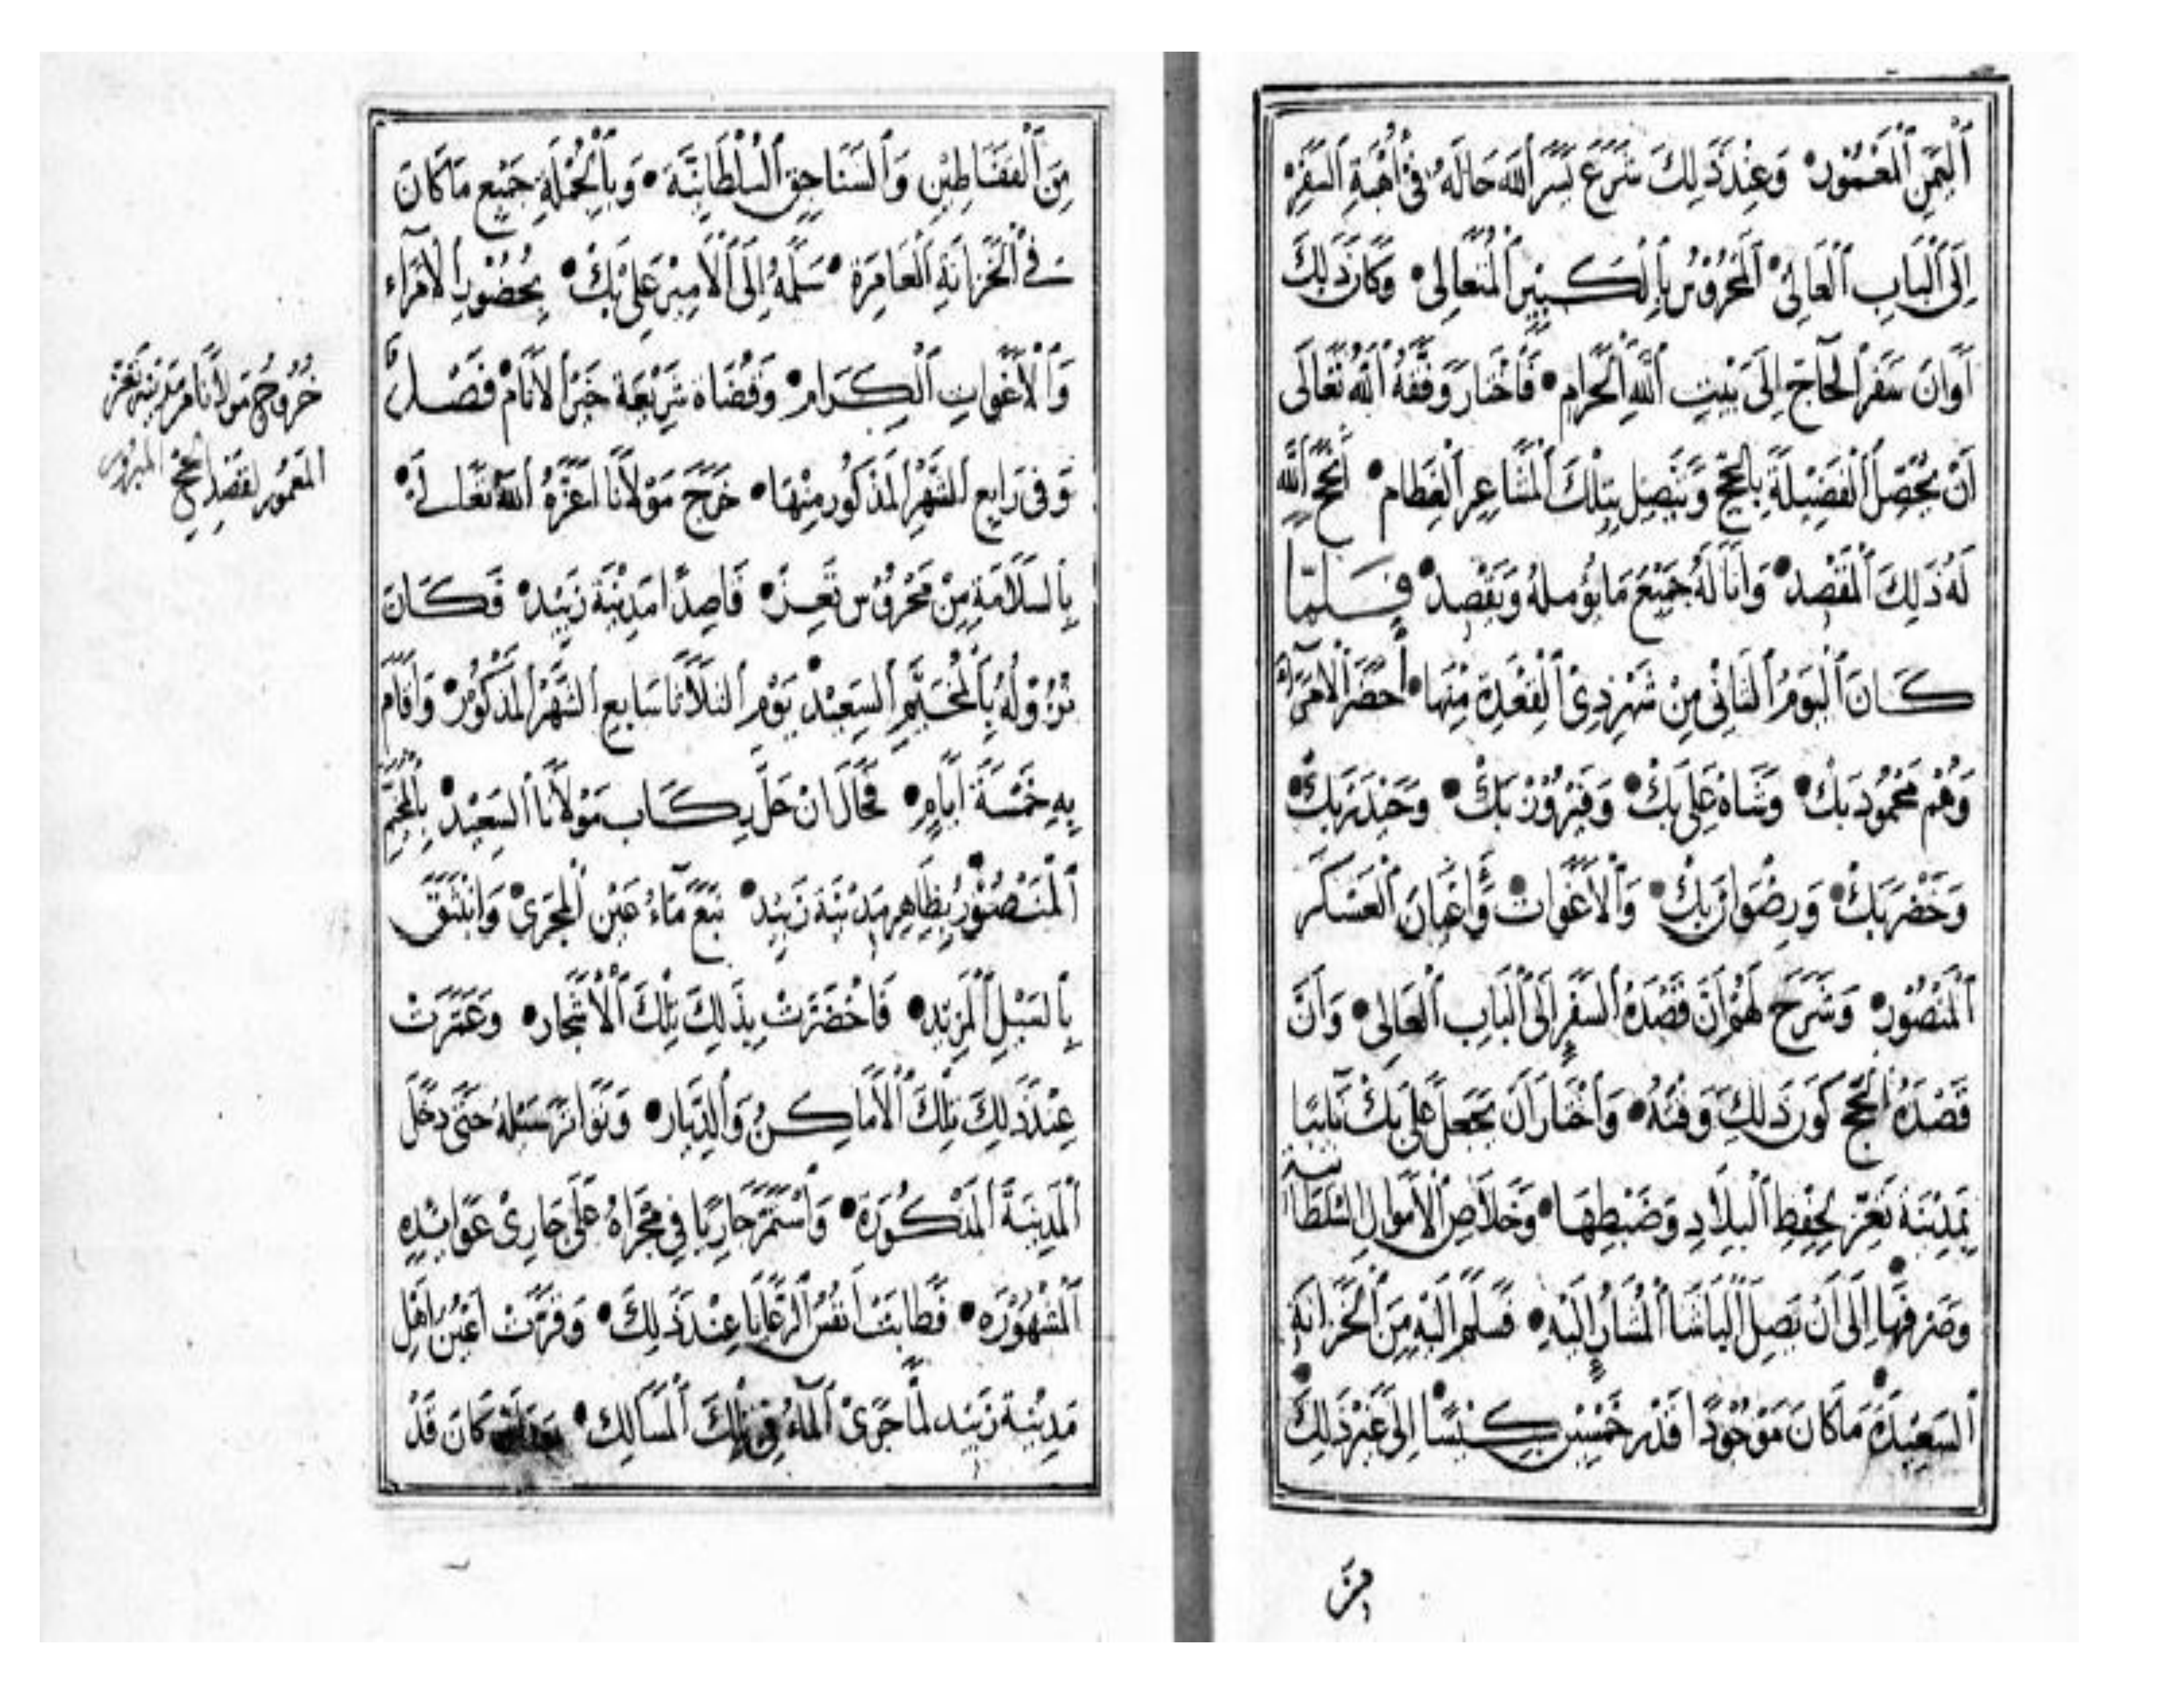 اَلْيَمَنِ اَلْمَعْمُوْرِ وَعِنْدَ ذَلِكَ شَرَعَ يَسَّرَ اَللّهُ حَالَهُ فِيْ أُهْبَةِ اَلسَّفَرِ
اِلَى اَلْبَابِ اَلْعَالِيْ اَلْمَحْرُوْسِ بِالْكَبِيْرِ اَلْمُتَعَالِى وَكَانَ ذَلِكَ
اَوَانَ سَفَرِ اَلْحَاجِّ اِلَى بَيْتِ اَللّهِ اَلْحَرَامِ فَاَخْتَارَ وَفَّقَهُ اَللّهُ تَعَالَى
اَنْ يُحَصِّلَ اَلْفَضِيْلَةَ بِالْحَجِّ وَيَتَّصِلَ بِتِلْكَ اَلْمَشَاعِرِ اَلْعِظَامِ اَنْجَحَ اَللّهُ
لَهُ ذَلِكَ اَلْمَقْصِدَ وَاَنَالَهُ جَمِيْعَ مَا يُؤَمِّلُهُ وَيَقْصِدُ فَلَمَّا
كَانَ اَلْيَوْمُ اَلثَّانِيْ مِنْ شَهْرِ ذِيْ اَلْقَعْدَةِ مِنْهَا أَحْضَرَ اَلْاُمَرَآءَ
وَهُمْ مَحْمُوْد بَكْ وَشَاهْ عَلِى بَكْ وَفَيْرُوْز بَكْ وَحَيْدَر بَكْ
وَخَضِر بَكْ وَرِضْوَان بَكْ وَاَلْاَغَوَات وَأَعْيَانَ اَلْعَسْكَرِ
اَلْمَنْصُوْرِ وَشَرَحَ لَهُمْ اَنَّ قَصْدَهُ اَلسَّفَرُ اِلَى اَلْبَابِ اَلْعَالِى وَاَنَّ
قَصْدَهُ اَلْحَجُّ كَوْنَ ذَلِكَ وَقْتُهُ وَاَخْتَارَ اَنْ يَجْعَلَ عَلِى بَكْ نَائِبًا
بِمَدِيْنَةِ تَعِزَّ لِحِفْظِ اَلْبِلَادِ وَضَبْطِهَا وَخَلَاصِ اَلْاَمْوَالِ اَلسُّلْطَانِيَّةِ
وَصَرْفِهَا اِلَى اَنْ يَصِلَ اَلْبَاشَا اَلْمُشَارُ اِلَيْهِ فَسَلَّمَ اِلَيْهِ مِنَ اَلْخَزَانَةِ
اَلسَّعِيْدَةِ مَا كَانَ مَوْجُوْدًا قَدْرَ خَمْسِيْنَ كِيْسًا اِلَى غَيْرِ ذَلِكَ
مِنَ
مِنَ اَلْقَفَاطِيْنِ وَاَلسَّنَاجِقِ اَلسُّلْطَانِيَّةِ وَبِاَلْجُمْلَةِ جَمِيْع مَا كَانَ
فِيْ اَلْخَزَانَةِ اَلْعَامِرَةِ سَلَّمَهُ اِلَى اَلْاَمِيْرِ عَلِيْ بَكْ بِحُضُوْرِ اَلْاُمَرَاءِ
وَاَلْاَغَوَاتِ اَلْكِرَامِ وَقُضَاة شَرِيْعَة خَيْرِ اَلْاَنَامْ فَصْل
وَفِى رَابِعِ اَلشَّهْرِ اَلْمَذْكُوْرِ مِنْهَا خَرَجَ مَوْلَانَا اَعَزَّهُ اَللّهُ تَعَالَى
بِالسَّلَامَةِ مِنْ مَحْرُوْسِ تَعِزّ قَاصِدًا مَدِيْنَةَ زَبِيْد فَكَانَ
نُزُوْلُهُ بِالْمُخَيَّمِ اَلسَّعِيْدِ يَوْم اَلثَّلَاثَا سَابِع اَلشَّهْرِ اَلْمَذْكُوْرِ وَاَقَامَ
بِهِ خَمْسَةَ اَيَّامٍ فَحَالَ اَنْ حَلَّ رِكَاب مَوْلَانَا اَلسَّعِيْد بِالْمُخَيَّمِ
اَلْمَنْصُوْرِ بِظَاهِرِ مَدِيْنَة زَبِيْد نَبَعَ مَآءُ عَيْنِ اَلْمَجْرَى وَانْبَثَقَ
بِالسَّيْلِ اَلْمَزِيْدِ فَاَخْضَرَّتْ بِذَلِكَ تِلْكَ اَلْاَشْجَار وَعَمَرَتْ
عِنْدَ ذَلِكَ تِلْكَ اَلْاَمَاكِنُ وَاَلدِّيَار وَتَوَاتَرَ سَيْلُهُ حَتَّى دَخَلَ
اَلْمَدِيْنَةَ اَلْمَذْكُوْرَةَ وَاَسْتَمَرَّ جَارِيًا فِى مَجْرَاهُ عَلَى جَارِيْ عَوَائِدِهِ
اَلْمَشْهُوْرَةِ فَطَابَتْ اَنْفُسُ اَلرَّعَايَا عِنْدَ ذَلِكَ وَقَرَّتْ اَعْيُنُ اَهْلِ
مَدِيْنَة زَبِيْد لَمَّا جَرَى اَلْمَاءُ فِى تِلْكَ اَلْمَسَالِكِ كَانَ قَدْ
خُرُوْجُ مَوْلَانَا مِنْ مَدِيْنَةِ تَعِزّ
اَلْمَعْمُوْر لِقَصْدِ اَلْحَجِّ اَلْمَبْرُوْر